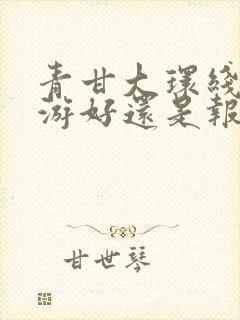 青甘大環綫
游好還是報
甘世琴